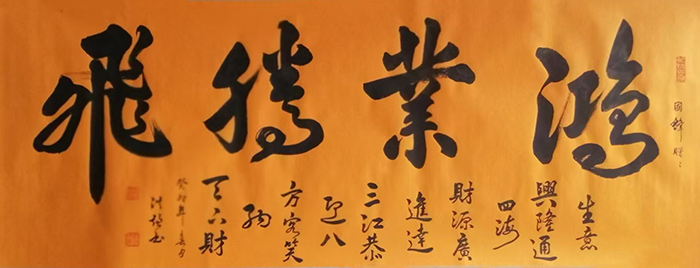 鴻業騰飛
生意
興隆通
四海
財源廣
進達
三江恭
迎八
方客笑
納
天下財
癸卯年春月